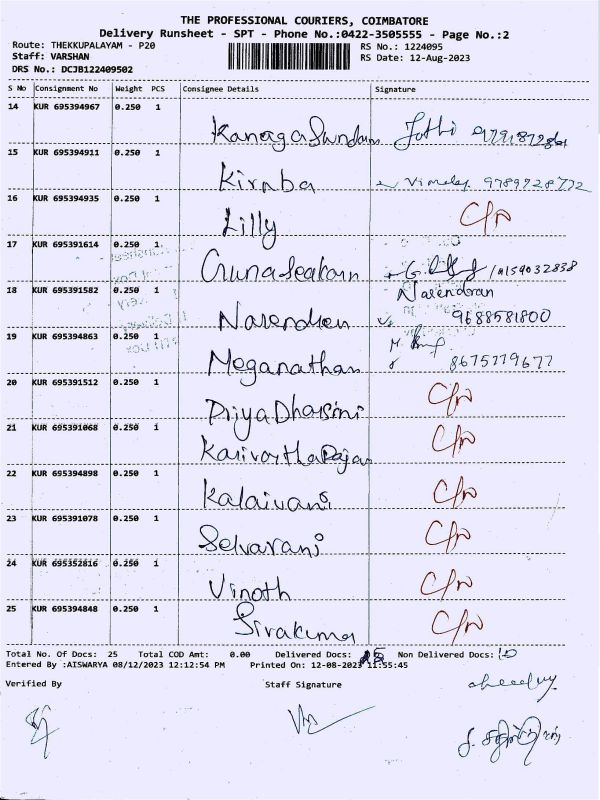 THE PROFESSIONAL COURIERS, COIMBATORE
Delivery Runsheet - SPT - Phone No.:0422-3505555 - Page No.:2
Route: THEKKUPALAYAM - P20 RS No.: 1224095
Staff: VARSHAN RS Date: 12-Aug-2023
DRS No.: DCJB122409502
S No Consignment No Weight PCS Consignee Details Signature
14 KUR 695394967 0.250 1
KanagaSundam Jothi
15 KUR 695394911 0.250 1
Kirnba Vimalaj 9789728772
16 KUR 695394935 0.250 1
Lilly C/N
17 KUR 695391614 0.250 1
Gunaseakarn
18 KUR 695391582 0.250 1 Narendran
Narendren 9688581800
19 KUR 695394863 0.250 1
Meganathan 8675779677
20 KUR 695391512 0.250 1 C/N
PriyaDharsini
21 KUR 695391068 0.250 1 C/N
KarivorthaRajan
22 KUR 695394898 0.250 1
Kalaivani C/N
23 KUR 695391078 0.250 1
Selvarani C/N
24 KUR 695352816 0.250 1
Vinoth C/N
25 KUR 695394848 0.250 1
Sivakuma C/N
Total No. Of Docs: 25 Total COD Amt: 0.00 Delivered Docs: 15 Non Delivered Docs: 10
Entered By :AISWARYA 08/12/2023 12:12:54 PM Printed On: 12-08-2023 11:55:45
Verified By Staff Signature